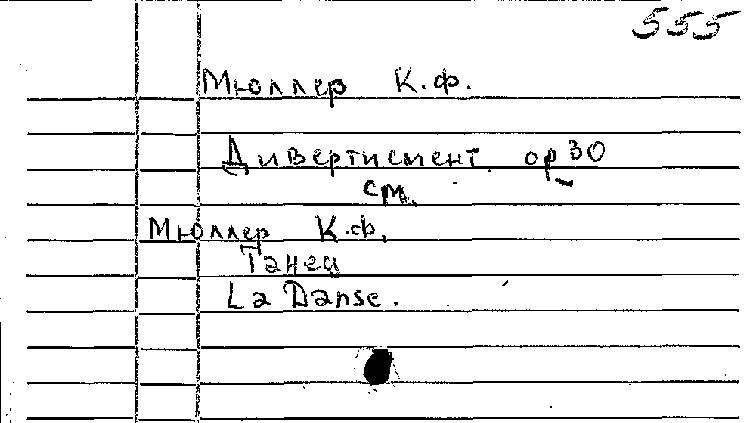 555
Мюллер К.Ф.
Дивертисмент. ор 30
см.
Мюллер К.Ф.
Танец
La Danse.